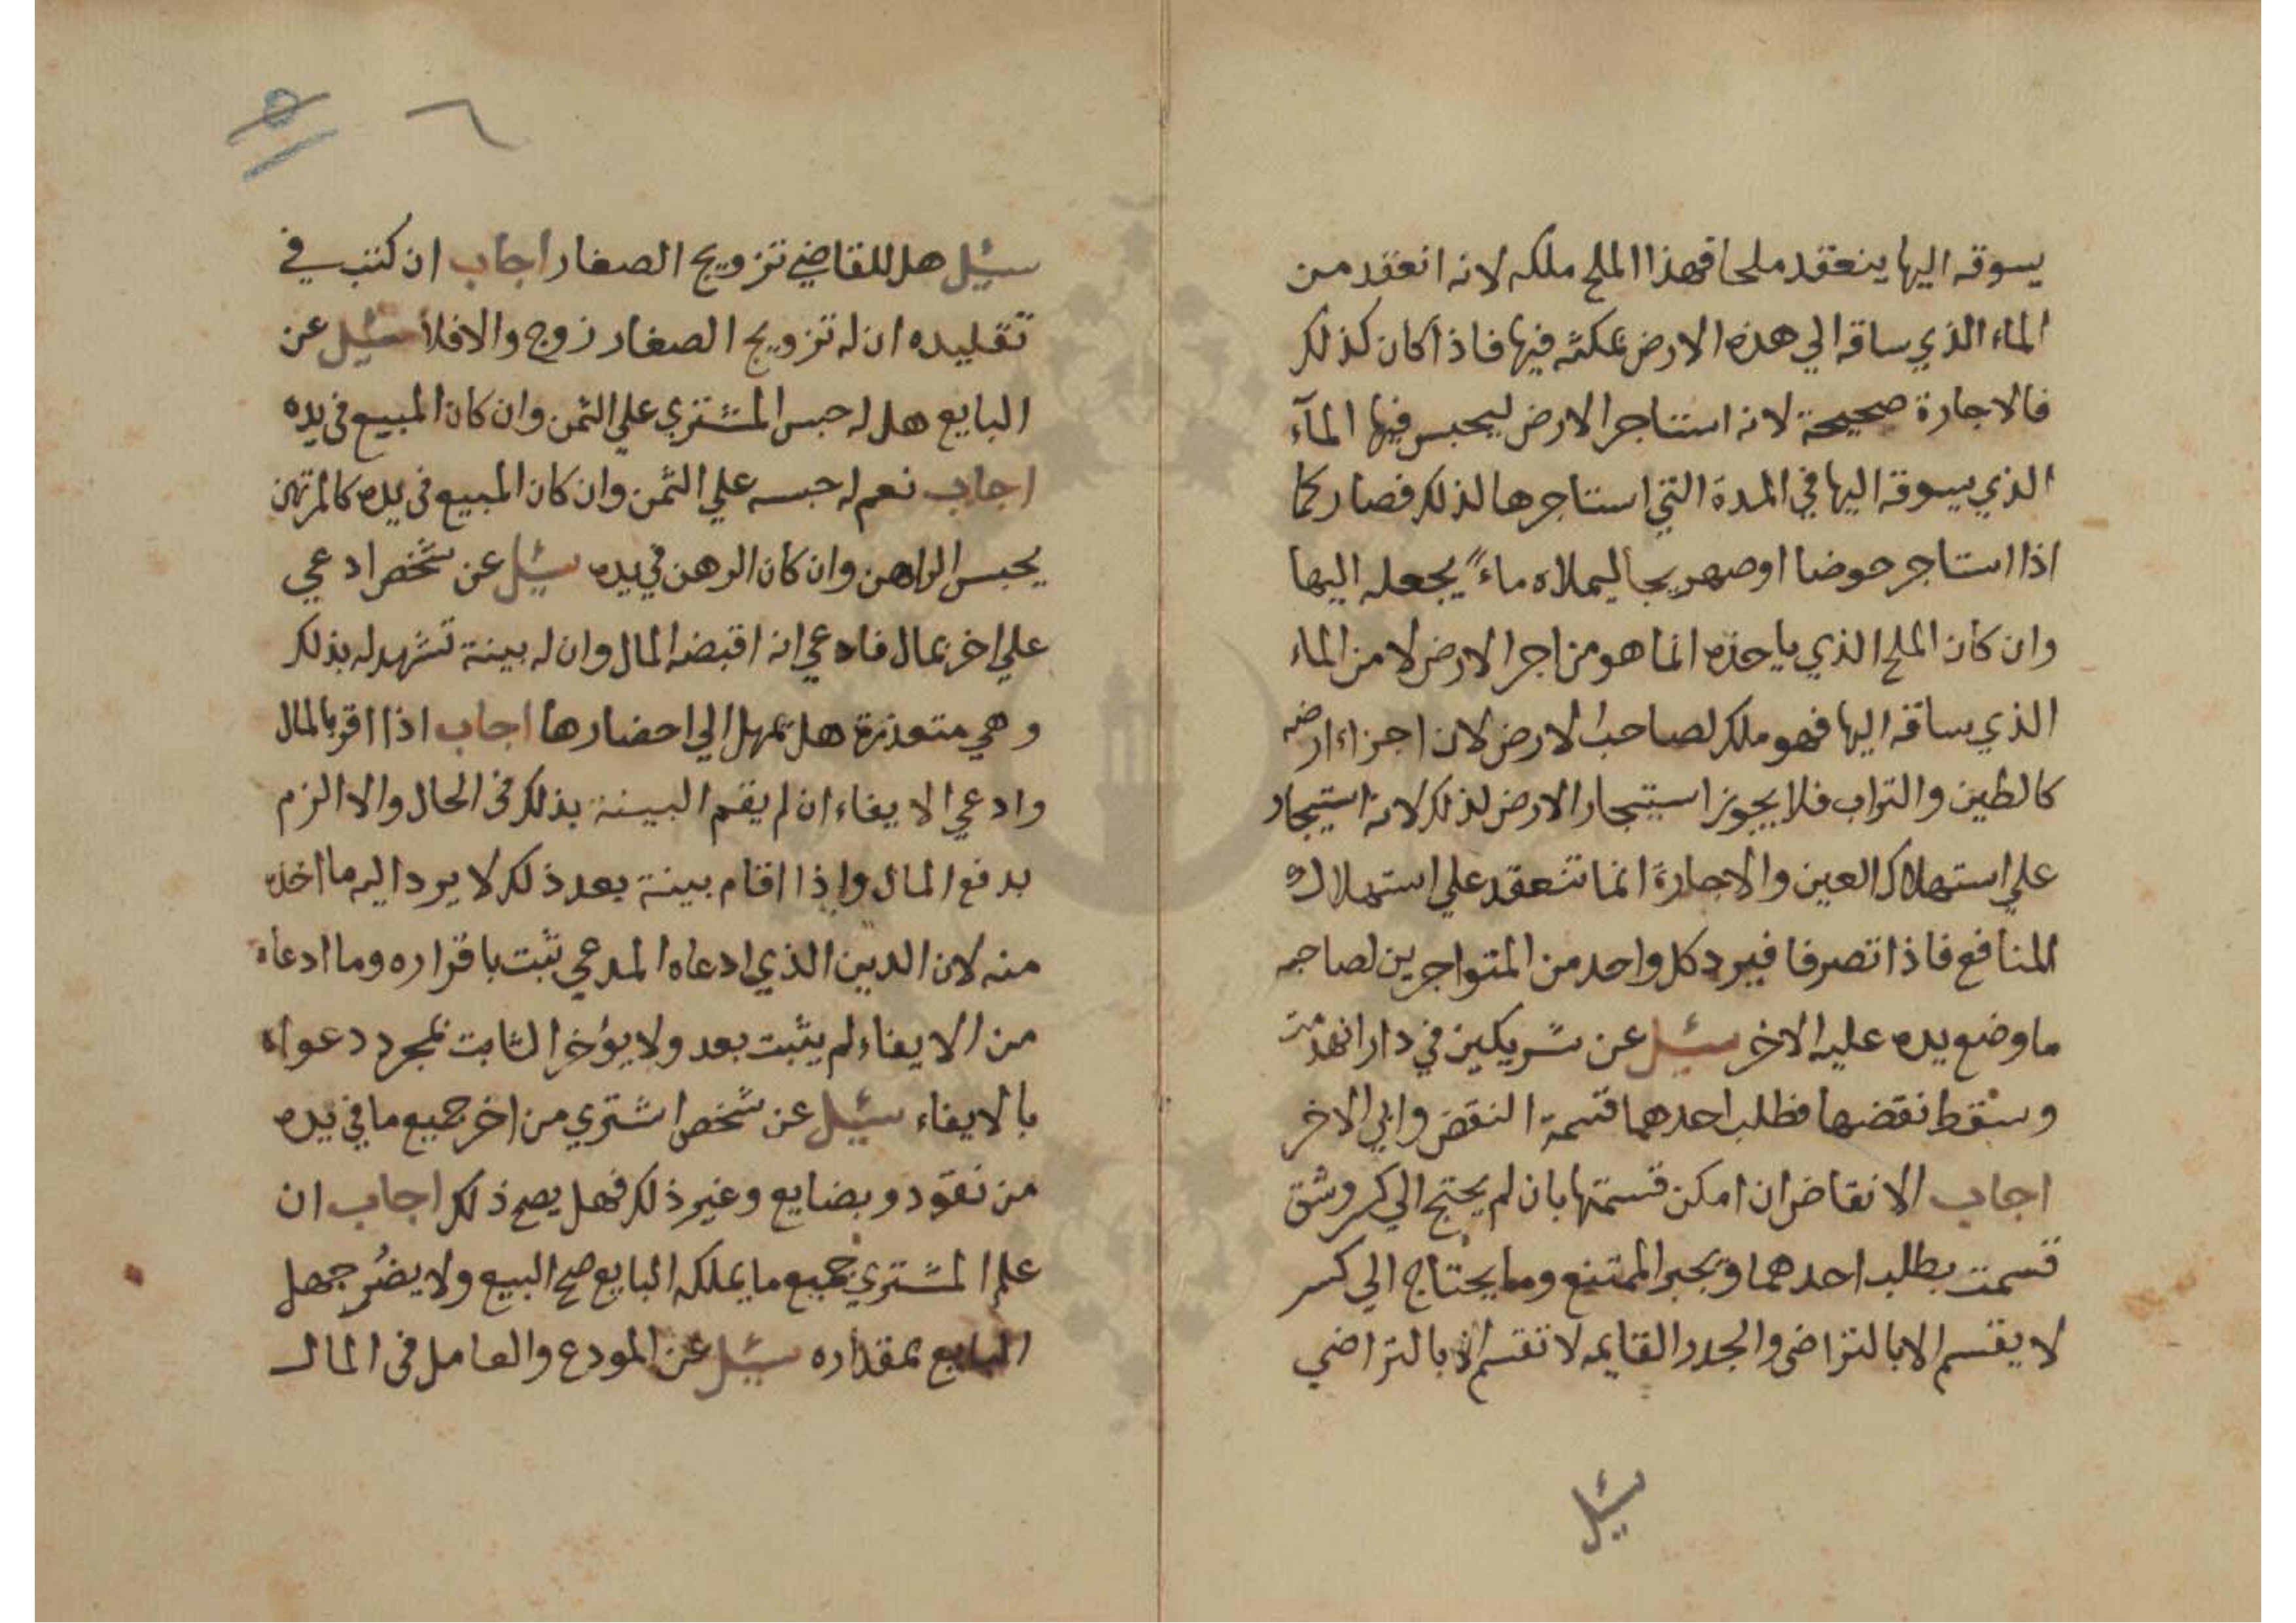 يسوقه اليها ينعقد ملحا فهذا الملح ملكه لانه انعقد من
الماء الذي ساقه الي هذه الارض بمكثه فيها فاذا كان كذلك
فالاجارة صحيحة لانه استاجر الارض ليحبس فيها المآء
الذي يسوقه اليها في المدة التي استاجرها لذلك فصار كما
اذا استاجر حوضا اوصهريجا ليملاه ماءً يجعله اليها
وان كان الملح الذي ياخذه انما هو من اجرا الارض لا من الماء
الذي ساقه اليها فهو ملك لصاحب الارض لان اجزاء ارضه
كالطين والتراب فلا يجوز استيجار الارض لذلك لانه استيجار
علي استهلاك العين والاجارة انما تنعقد علي استهلاك
المنافع فاذا تصرفا فيرد كل واحد من المتواجرين لصاحبه
ما وضع يده عليه الاخر سئيل عن شريكين في دار انهدمت
وسقط نقضها فطلب احدهما قسمة النقض وابي الاخر
اجاب الانقاض ان امكن قسمتها بان لم يحتج الي كسر وشق
قسمت بطلب احدهما ويجبر الممتنع وما يحتاج الي كسر
لا يقسم الا بالتراضي والجدر القايمه لا تقسم الا بالتراضي
سئيل
٦ ٥
سئيل هل للقاضي تزويج الصغار اجاب ان كتب في
تقليده ان له تزويج الصغار زوج والافلا سئيل عن
البايع هل له حبس المشتري علي الثمن وان كان المبيع في يده
اجاب نعم له حبسه علي الثمن وان كان المبيع في يده كالمرتهن
يحبس الراهن وان كان الرهن في يده سئيل عن شخص ادعي
علي اخر بمال فادعي انه اقبضه المال وان له بينة تشهد له بذلك
وهي متعذرة هل يمهل الي احضارها اجاب اذا اقر بالمال
وادعي الايفاء ان لم يقم البينة بذلك في الحال والا الزم
بدفع المال واذا اقام بينة بعد ذلك لا يرد اليه ما اخذه
منه لان الدين الذي ادعاه المدعي ثبت باقراره وما ادعاه
من الايفاء لم يثبت بعد ولا يؤخر الثابت بمجرد دعواه
بالايفاء سئيل عن شخص اشتري من اخر جميع ما في يده
من نقود وبضايع وغير ذلك فهل يصح ذلك اجاب ان
علم المشتري جميع ما يملكه البايع صح البيع ولا يضر جهل
البايع بمقداره سئيل عن المودع والعامل في المال